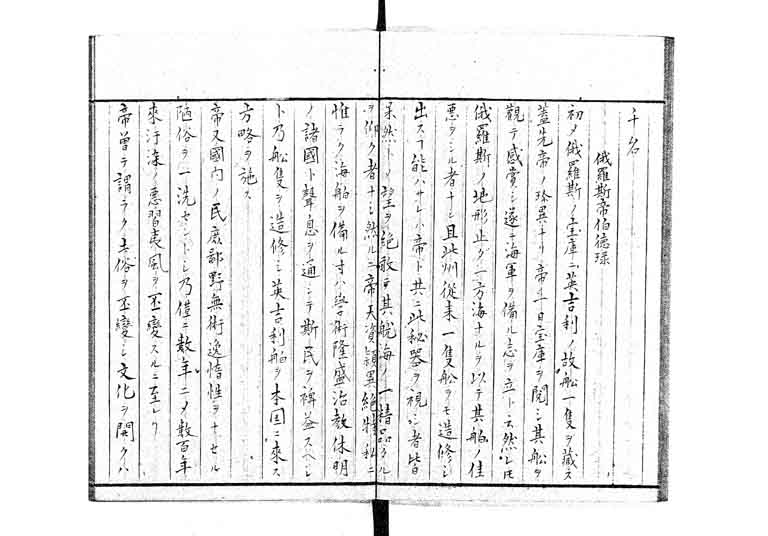 千名
俄羅斯帝伯德球
初メ俄羅斯ノ宝庫ニ英吉利ノ故船一隻ヲ藏ス
蓋先帝ノ珍異ナリ帝一日宝庫ヲ閲シ其船ヲ
觀テ感賞シ遂ニ海軍ヲ備ル志ヲ立ト云然レ𪜈
俄羅斯ノ地形止タ一方海ナルヲ以テ其船ノ佳
悪ヲシル者ナシ且此州從来一隻船ヲモ造修シ
出スヿ能ハサレハ帝ト共ニ此秘器ヲ視シ者皆
呆然トノ望ヲ絶敢テ其航海ノ一精品タル
ヲ仰ク者ナシ然ルニ帝天資頴異絶特私ニ
惟ラク海舶ヲ備ル寸ハ学術隆盛治教休明
ノ諸國ト聲息ヲ通シテ斯民ヲ裨益スヘシ
ト乃船隻ヲ造修シ英吉利船ヲ本国ニ來ス
方略ヲ施ス
帝又國内ノ民庶鄙野無術逸惰性ヲナセル
陋俗ヲ一洗セントシ乃僅ニ数年ニメ数百年
來汙染ノ悪習衰風ヲ丕變スルニ至レリ
帝曽テ謂ラク土俗ヲ丕變シ文化ヲ開クハ